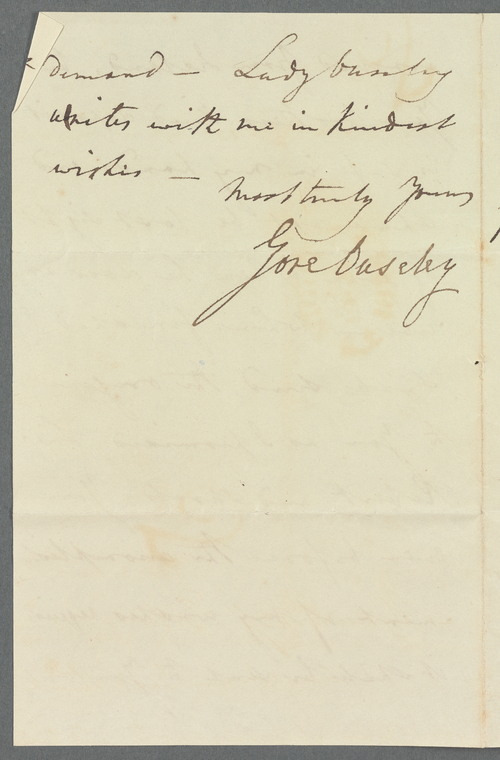 demand — Lady Ouseley
unites with me in kindest
wishes —
most truly Yours
Gore Ouseley